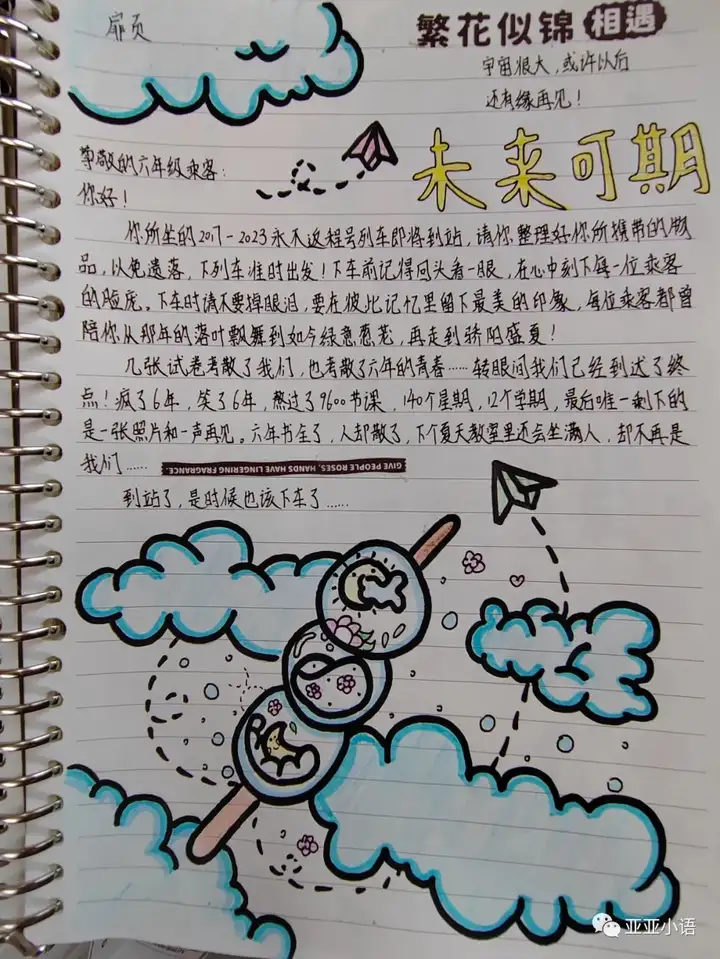 扉页
繁花似锦 相遇
宇宙很大，或许以后
还有缘再见！
未来可期
尊敬的六年级乘客：
你好！
你所坐的2017-2023永不返程号列车即将到站，请你整理好你所携带的物
品，以免遗落，下列车准时出发！下车前记得回头看一眼，在心中刻下每一位乘客
的脸庞。下车时请不要掉眼泪，要在彼此记忆里留下最美的印象，每位乘客都曾
陪你从那年的落叶飘舞到如今绿意葱茏，再走到骄阳盛夏！
几张试卷考散了我们，也考散了六年的青春……转眼间我们已经到达了终
点！疯了6年，笑了6年，熬过了9600节课，140个星期，12个学期，最后唯一剩下的
是一张照片和一声再见。六年书全了，人却散了，下个夏天教室里还会坐满人，却不再是
我们……
GIVE PEOPLE ROSES, HANDS HAVE LINGERING FRAGRANCE
到站了，是时候也该下车了……
亚亚小语